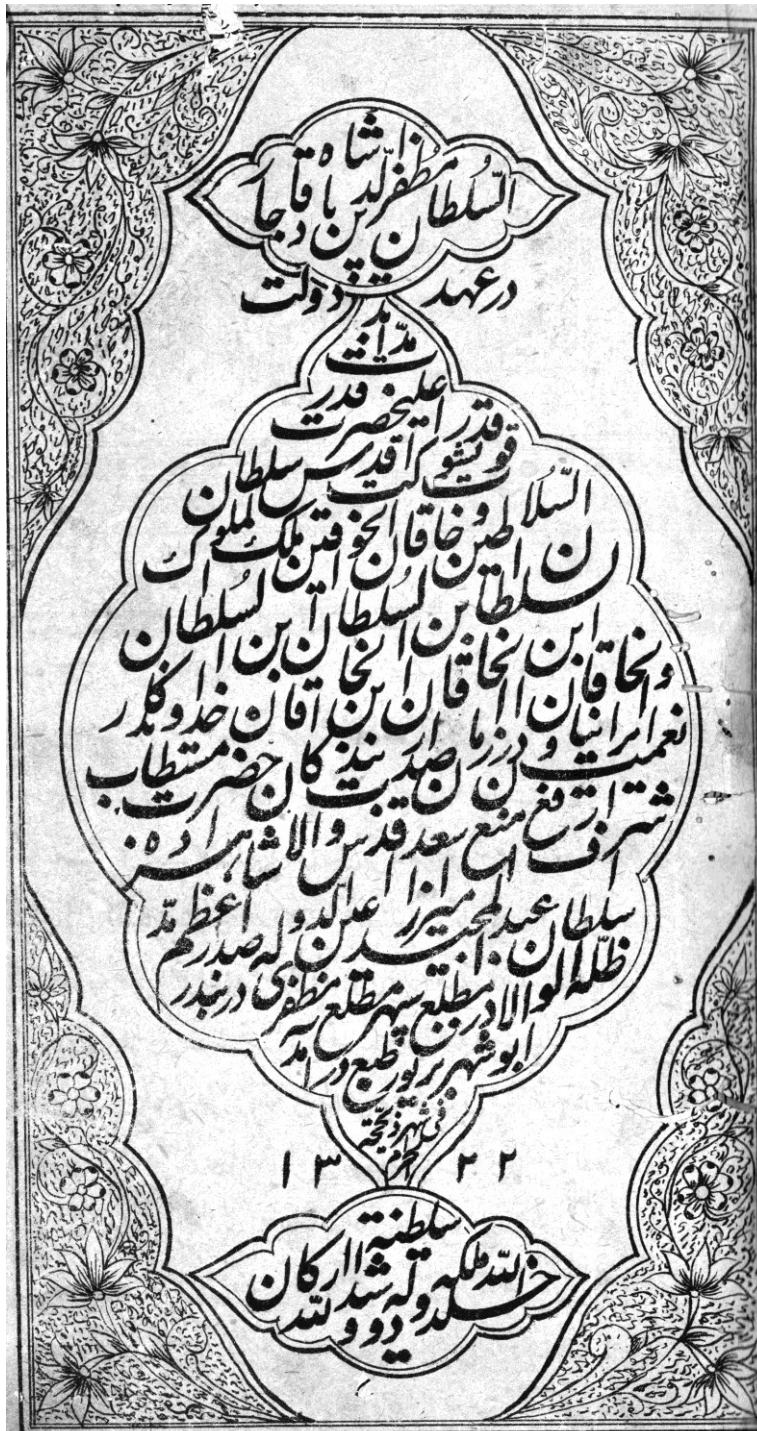 السّلطان مظفرالدین شاه پادقاجار
در عهد دولت
اعلیحضرت قدر قدرت
قویشوکت اقدس سلطان
السّلاطین و خاقان الخواقین ملک الملوک
السلطان ابن السلطان ابن السلطان
والخاقان ابن الخاقان ابن الخاقان خداوندگار
نعمت ایرانیان و در زمان صدارت بندگان حضرت مستطاب
اشرف ارفع امنع اسعد اقدس والا شاهزاده
سلطان عبدالمجید میرزا عین الدوله صدر اعظم مدّ
ظلّه الوالا در مطلع سپهر مطلع مظفری در بندر
ابوشهر بزیور طبع درآمد
فی شهر ذیحجّة الحرام
۱۳۲۲
خلد الله ملکه و سلطنته
و دولته و شید الله ارکان